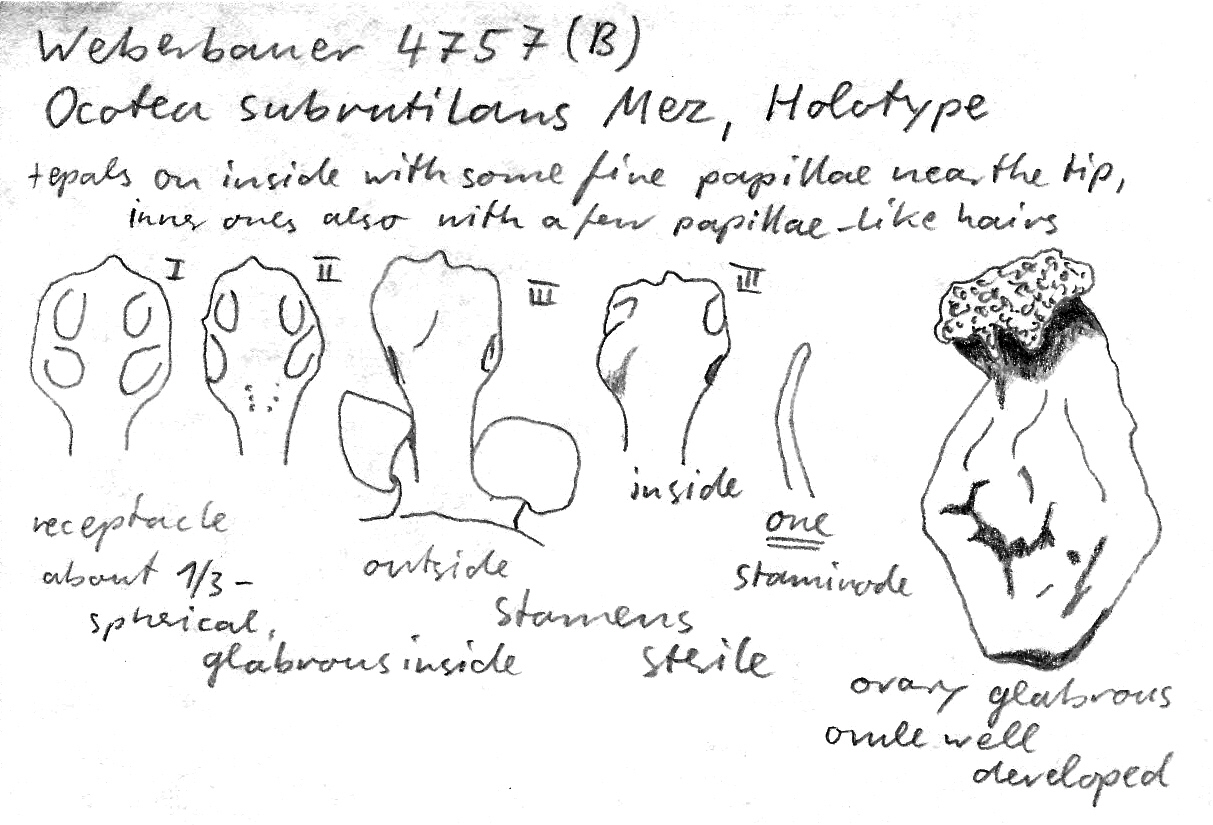 Weberbauer 4757 (B)
Ocotea subrutilans Mez, Holotype
tepals on inside with some fine papillae near the tip,
inner ones also with a few papillae-like hairs
I
II
III
III
inside
one
staminode
outside
receptacle
about 1/3-
spherical,
glabrous inside
stamens
sterile
ovary glabrous
ovule well
developed